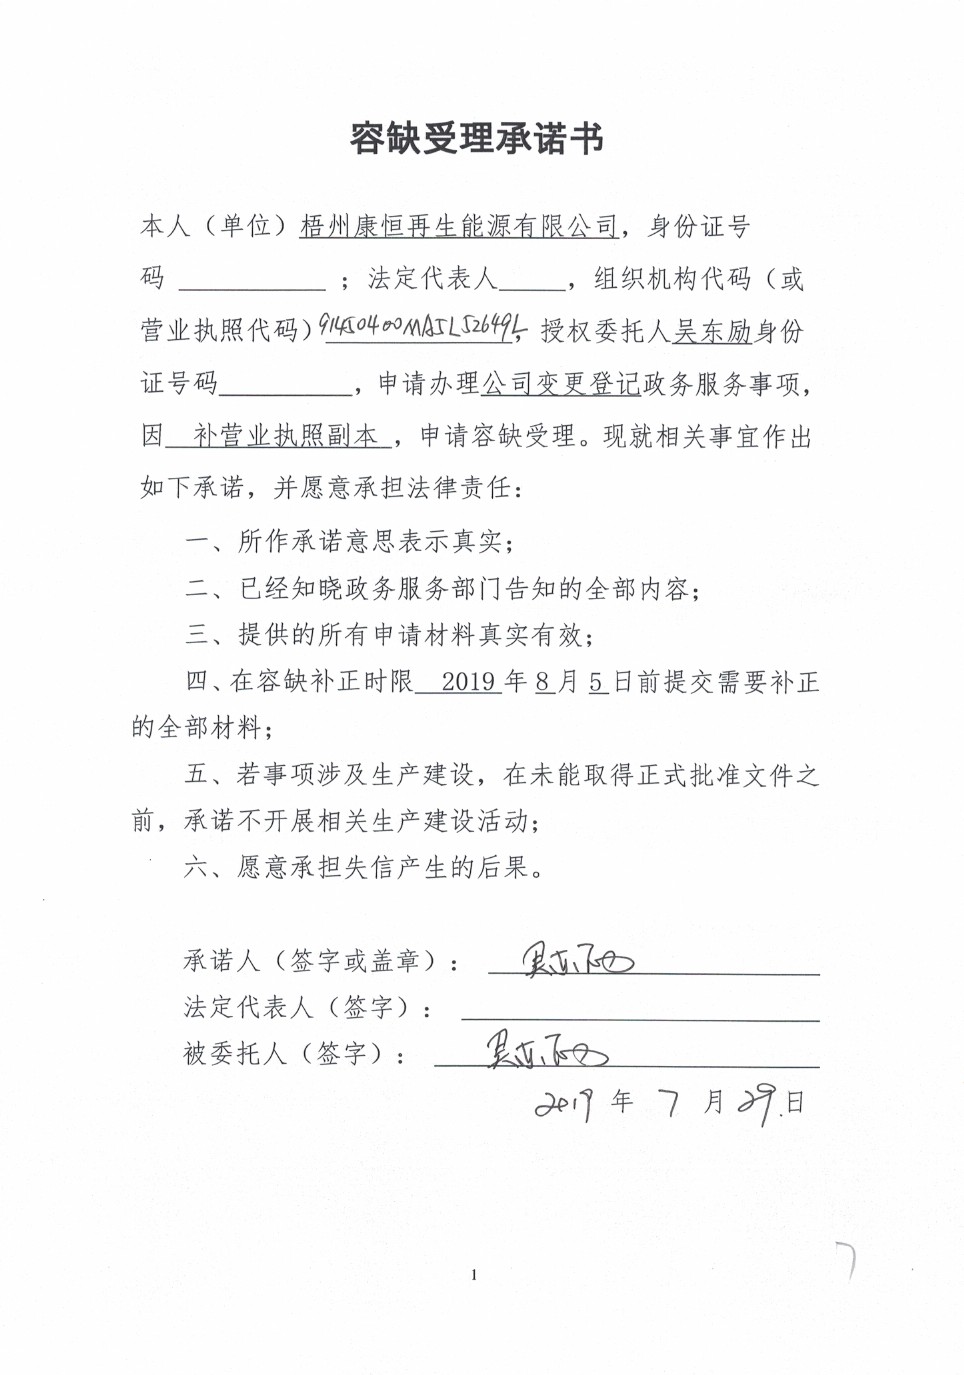 容缺受理承诺书
本人（单位）梧州康恒再生能源有限公司，身份证号
码 ___________ ；法定代表人_____，组织机构代码（或
营业执照代码）91450400MA5L52649L，授权委托人吴东励身份
证号码__________，申请办理公司变更登记政务服务事项，
因 补营业执照副本 ，申请容缺受理。现就相关事宜作出
如下承诺，并愿意承担法律责任：
一、所作承诺意思表示真实；
二、已经知晓政务服务部门告知的全部内容；
三、提供的所有申请材料真实有效；
四、在容缺补正时限 2019 年 8 月 5 日前提交需要补正
的全部材料；
五、若事项涉及生产建设，在未能取得正式批准文件之
前，承诺不开展相关生产建设活动；
六、愿意承担失信产生的后果。
承诺人（签字或盖章）： 吴东励
法定代表人（签字）：
被委托人（签字）： 吴东励
2019 年 7 月 29 日
7
1